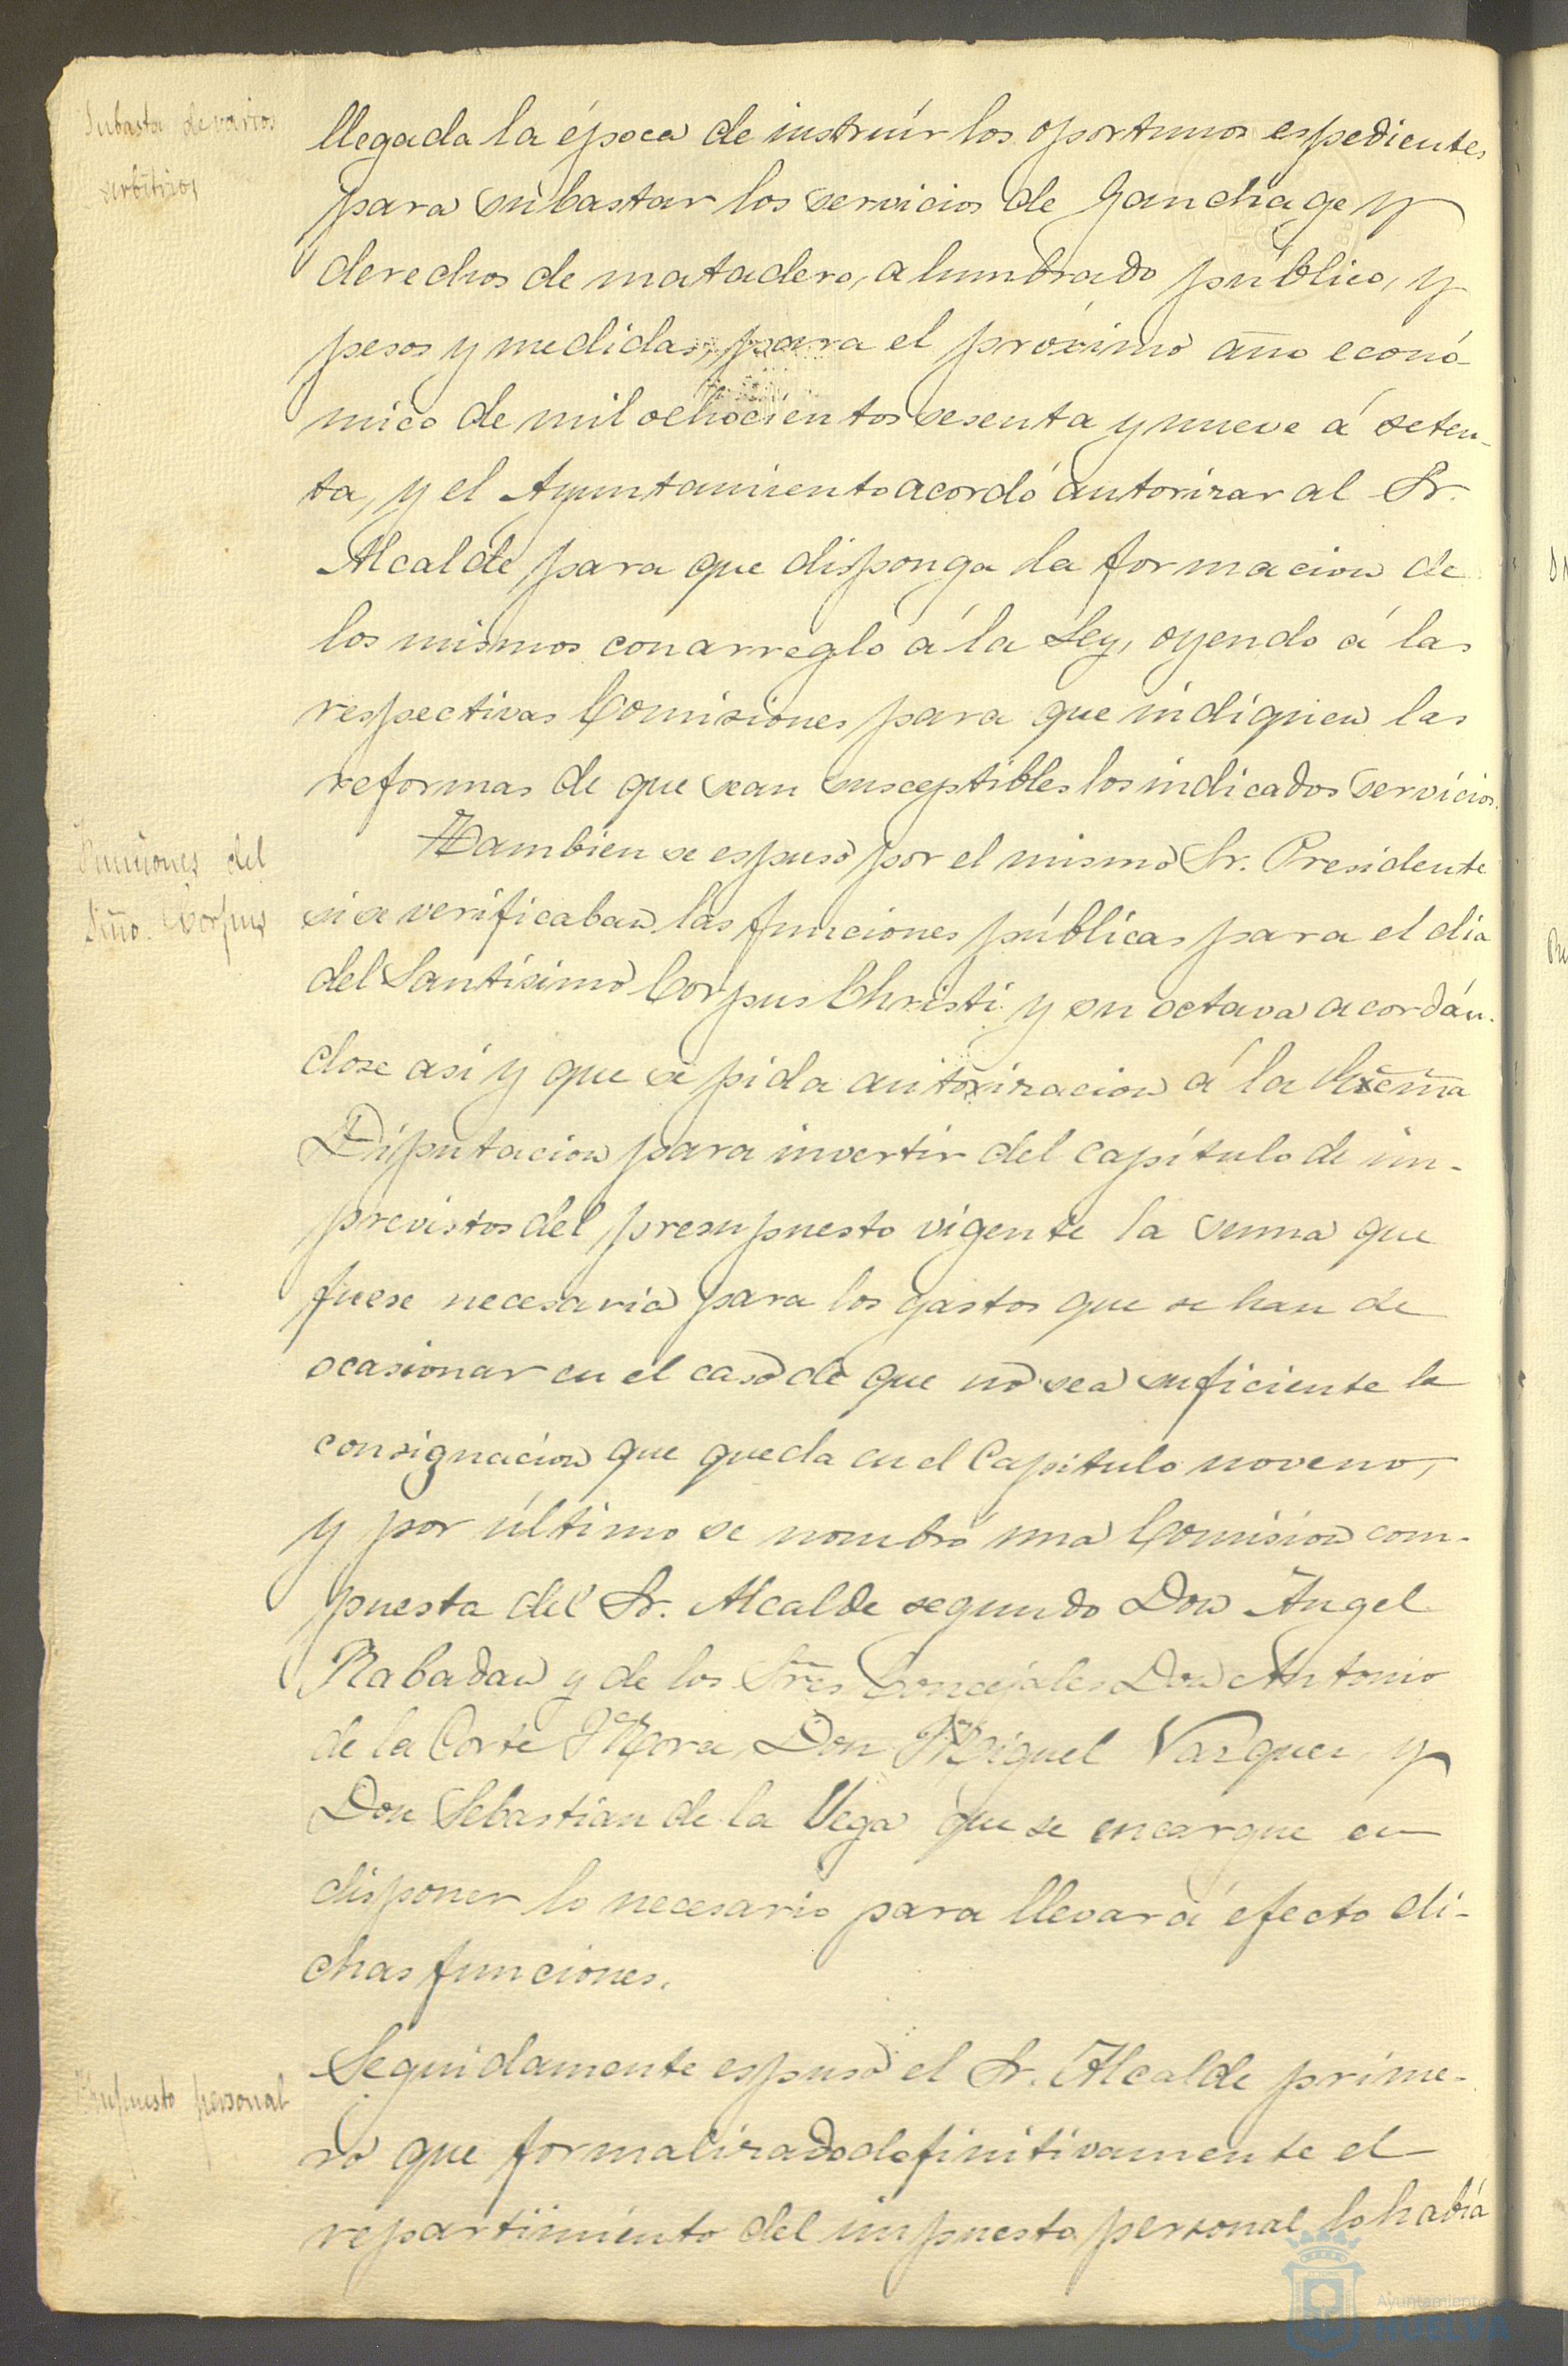 Subasta de varios
arbitrios
llegada la época de instruír los oportunos espedientes
para subastar los servicios de Ganchage y
derechos de matadero, alumbrado público, y
pesos y medidas, para el próximo año econó
mico de mil ochocientos sesenta y nueve á seten-
ta, y el Ayuntamiento acordó autorizar al Sr.
Alcalde para que disponga la formacion de
los mismos con arreglo á la Ley, oyendo á las
respectivas Comisiones para que indiquen las
reformas de que sean susceptibles los indicados servicios.
Funciones del
Stño. Corpus
Tambien se espuso por el mismo Sr. Presidente
si se verificaban las funciones públicas para el dia
del Santísimo Corpus Christi y su octava acordán-
dose así y que se pida autorizacion á la Excma
Diputacion para invertir del capítulo de im-
previstos del presupuesto vigente la suma que
fuese necesaria para los gastos que se han de
ocasionar en el caso de que no sea suficiente la
consignacion que queda en el Capitulo noveno,
y por último se nombró una Comision com-
puesta del Sr. Alcalde segundo Don Ángel
Rabadan y de los Sres Concejales Don Antonio
de la Corte Mora, Don Miguel Vazquez, y
Don Sebastian de la Vega que se encargue en
disponer lo necesario para llevar á efecto di-
chas funciones.
Impuesto personal
Seguidamente espuso el Sr. Alcalde prime-
ro que formalizado definitivamente el
repartimiento del impuesto personal lo habia
Ayuntamiento
HUELVA